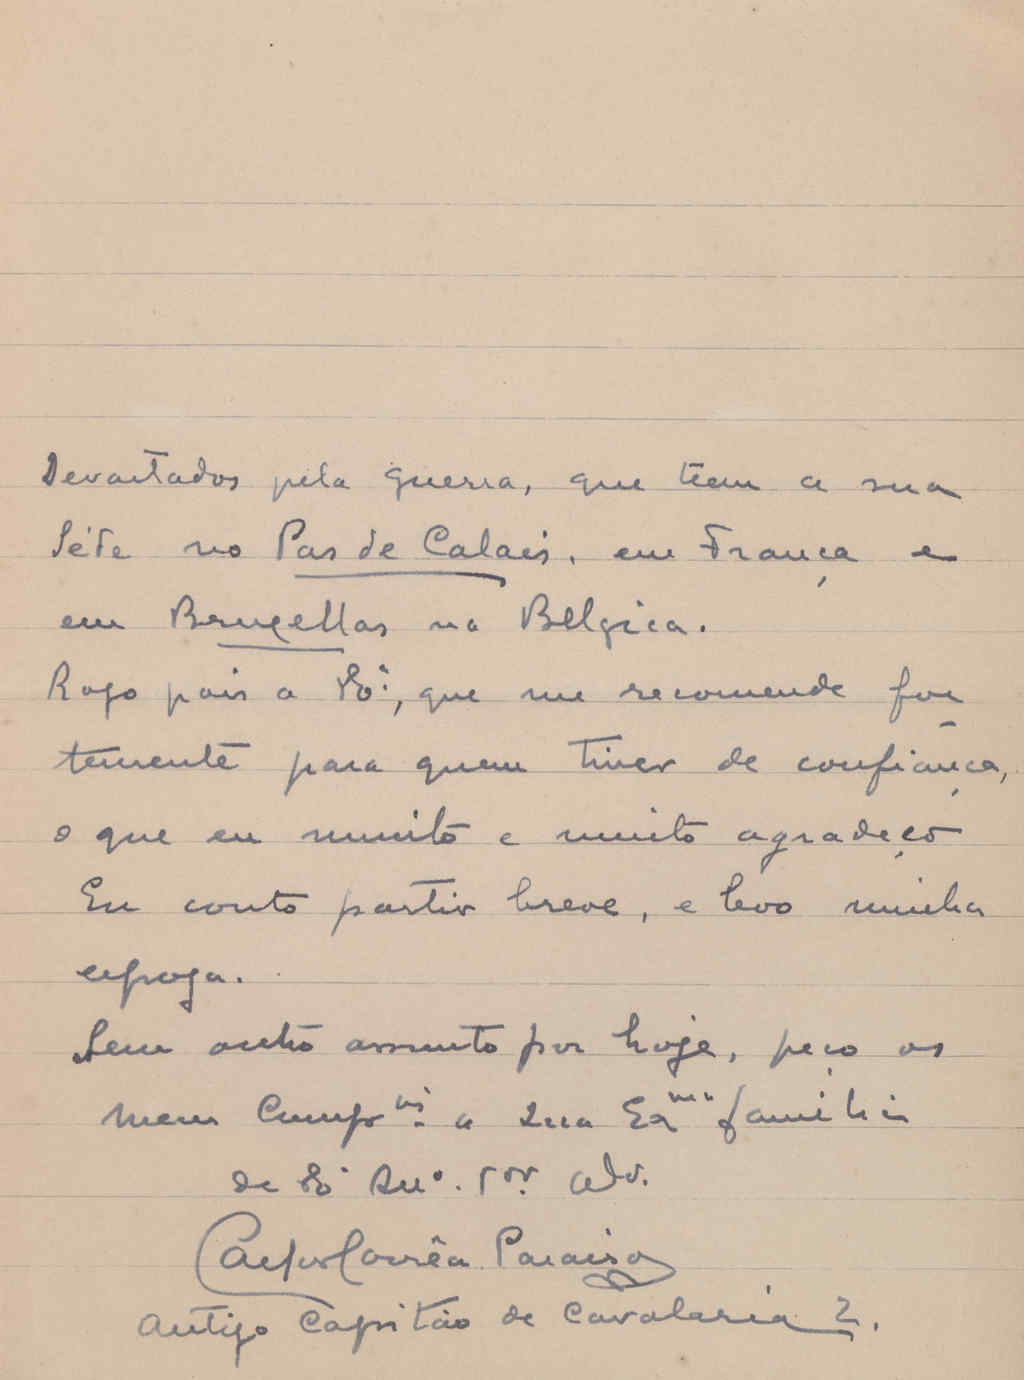 Devastados pela guerra, que teem a sua
Séde no Pas de Calais, em França e
em Bruxellas na Belgica.
Rogo pois a V. Exª, que me recomende for
temente para quem tiver de confiança,
o que eu muito e muito agradeço
Eu conto partir breve, e levo minha
esposa.
Sem outro assunto por hoje, peço os
meus Cumpᵗᵒˢ a sua Exᵐᵃ familia
de Adᵒʳ.
Carlos Corrêa Paraiso
Antigo Capitão de Cavalaria 2.